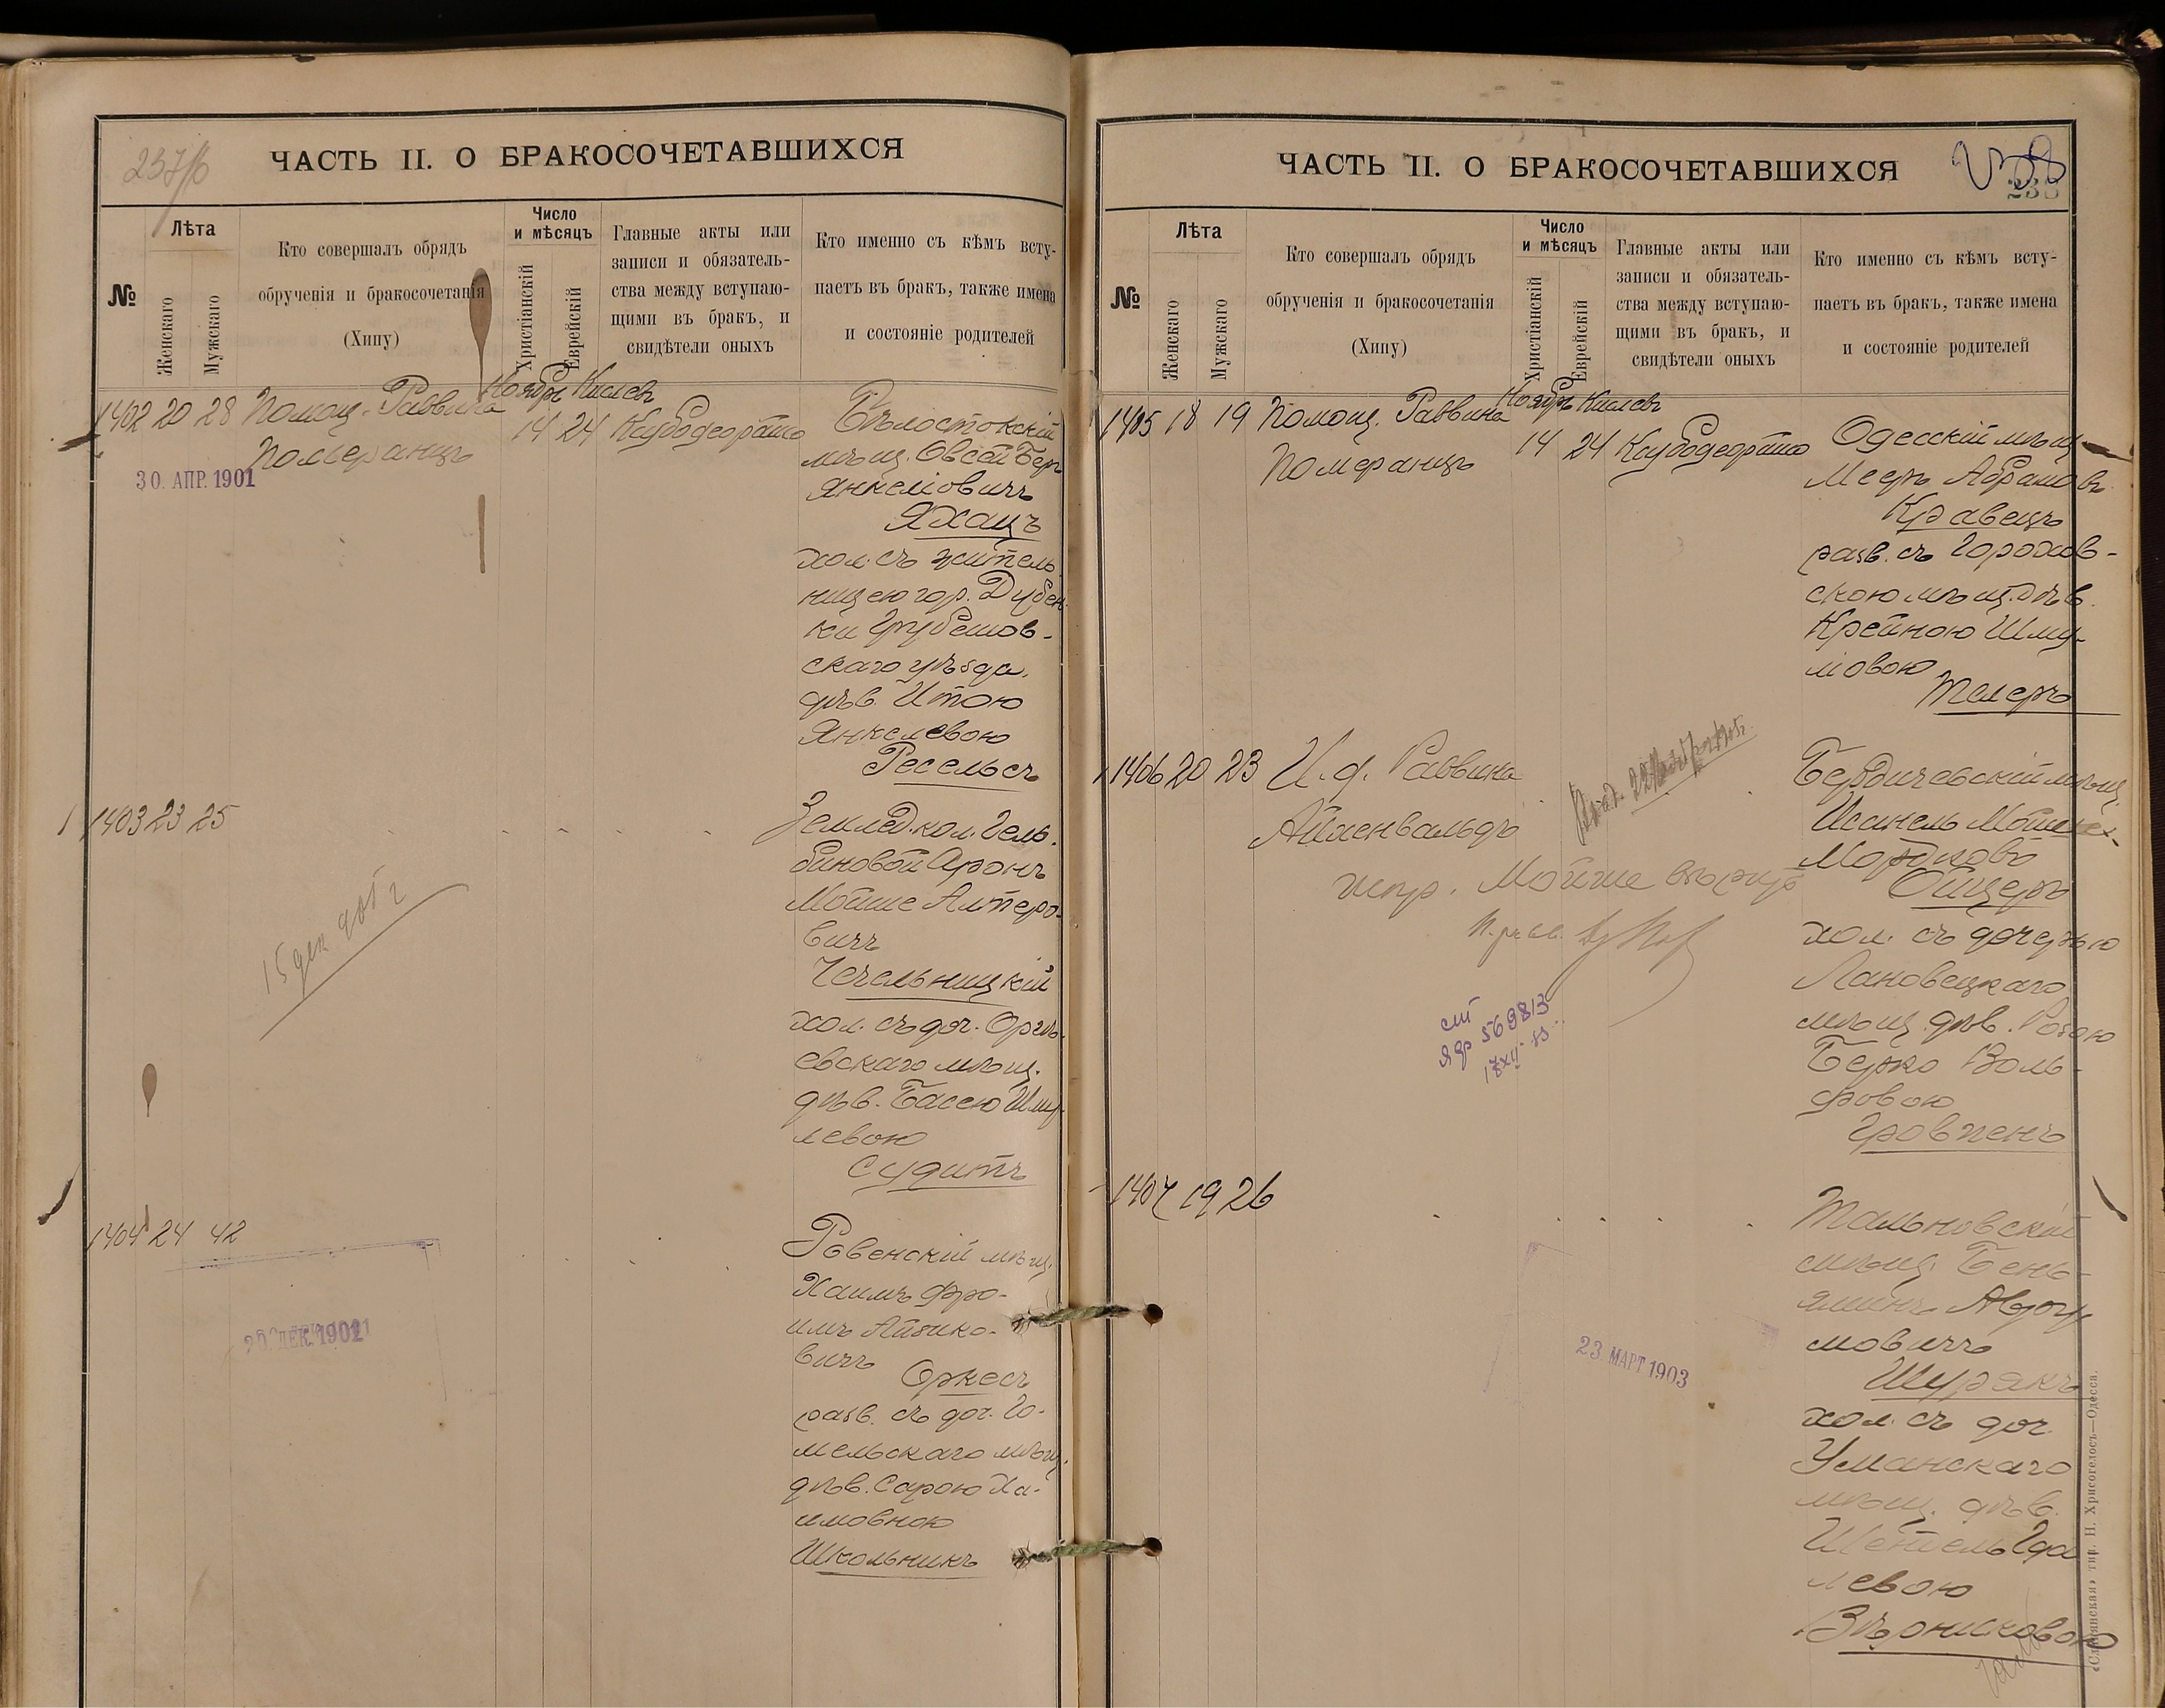 237/б
ЧАСТЬ II. О БРАКОСОЧЕТАВШИХСЯ
№
Лѣта
Женскаго
Мужскаго
Кто совершалъ обрядъ
обрученія и бракосочетанія
(Хипу)
Число
и мѣсяцъ
Христіанскій
Еврейскій
Главные акты или
записи и обязатель-
ства между вступаю-
щими въ бракъ, и
свидѣтели оныхъ
Кто именно съ кѣмъ всту-
паетъ въ бракъ, также имена
и состояніе родителей
Ноябрь Кислевъ
1402 20 28 Помощ. Раввина
Померанцъ
14 24
30. АПР. 1901
Бѣлостокскій
мѣщ. Овсей Бер
Янкеліовичъ
Яхацъ
хол. съ житель-
ницею гор. Дубен-
ки Грубешов-
скаго уѣзда,
дѣв. Итою
Янкелевою
Ресельсъ
1403 23 25
15 дек 905 г
Землед. кол. Гель-
биновой Аронъ
Мойше Алтеро-
вичъ
Чечельницкій
хол. съ доч. Оргѣ-
евскаго мѣщ.
дѣв. Басею Шму-
левою
Судитъ
1404 24 42
20 ДЕК. 1901
Ровенскій мѣщ.
Хаимъ Фро-
имъ Айзико-
вичъ
Оркесъ
разв. съ доч. Го-
мельскаго мѣщ.
дѣв. Сарою Ха-
имовною
Школьникъ
ЧАСТЬ II. О БРАКОСОЧЕТАВШИХСЯ
238
238
№
Лѣта
Женскаго
Мужскаго
Кто совершалъ обрядъ
обрученія и бракосочетанія
(Хипу)
Число
и мѣсяцъ
Христіанскій
Еврейскій
Главные акты или
записи и обязатель-
ства между вступаю-
щими въ бракъ, и
свидѣтели оныхъ
Кто именно съ кѣмъ всту-
паетъ въ бракъ, также имена
и состояніе родителей
Ноябрь Кислевъ
1405 18 19 Помощ. Раввина
Померанцъ
14 24
Одесскій мѣщ.
Мееръ Абрамовъ
Кравецъ
разв. съ Горохов-
скою мѣщ. дѣв.
Крейною Шму-
ліовою
Телеръ
1406 20 23 И. д. Раввина
Айхенвальдъ
испр. Мойше вѣрно
569813
Бердичевскій мѣщ.
Мордковъ
Ойцеръ
хол. съ дочерью
Лановецкаго
мѣщ. дѣв. Розою
Берко Воль-
фовою
1407 19 26
23 МАРТ 1903
Тальновскій
мѣщ. Бень-
яминъ Авру-
мовичъ
Шурякъ
хол. съ доч.
Уманскаго
мѣщ. дѣв.
Шейтель Гда
левою
«Славянская» тип. Н. Хрисогелосъ—Одесса.